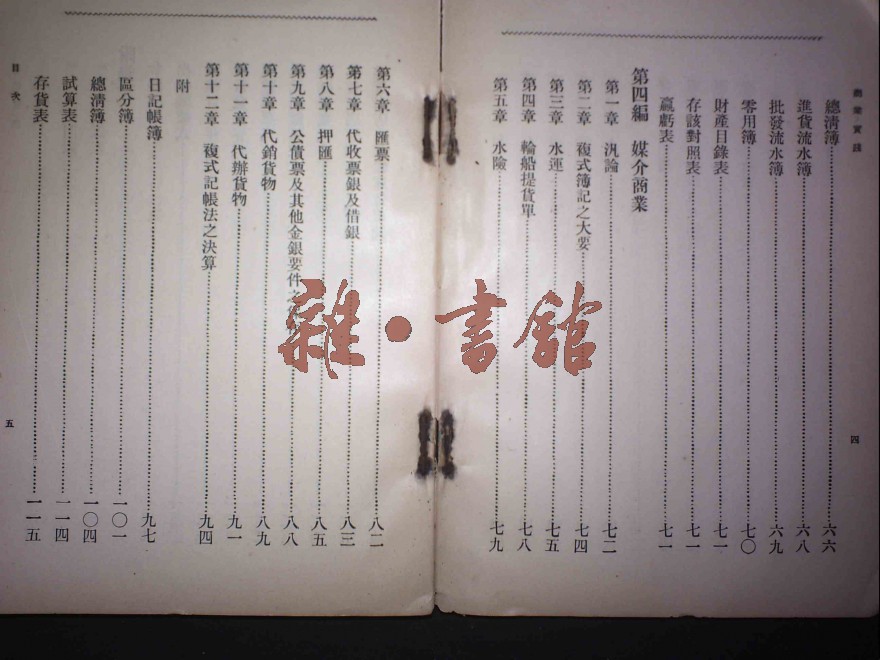 商業實踐
總清簿 六六
進貨流水簿 六八
批發流水簿 六九
零用簿 七〇
財產目錄表 七一
存該對照表 七一
贏虧表 七一
第四編 媒介商業
第一章 汎論 七二
第二章 複式簿記之大要 七四
第三章 水運 七五
第四章 輪船提貨單 七八
第五章 水險 七九
四
第六章 匯票 八二
第七章 代收票銀及借銀 八三
第八章 押匯 八五
第九章 公債票及其他金銀要件之 八八
第十章 代銷貨物 八九
第十一章 代辦貨物 九一
第十二章 複式記帳法之決算 九四
附
日記帳簿 九七
區分簿 一〇一
總清簿 一〇四
試算表 一一四
存貨表 一一五
目次
五
雜·書館